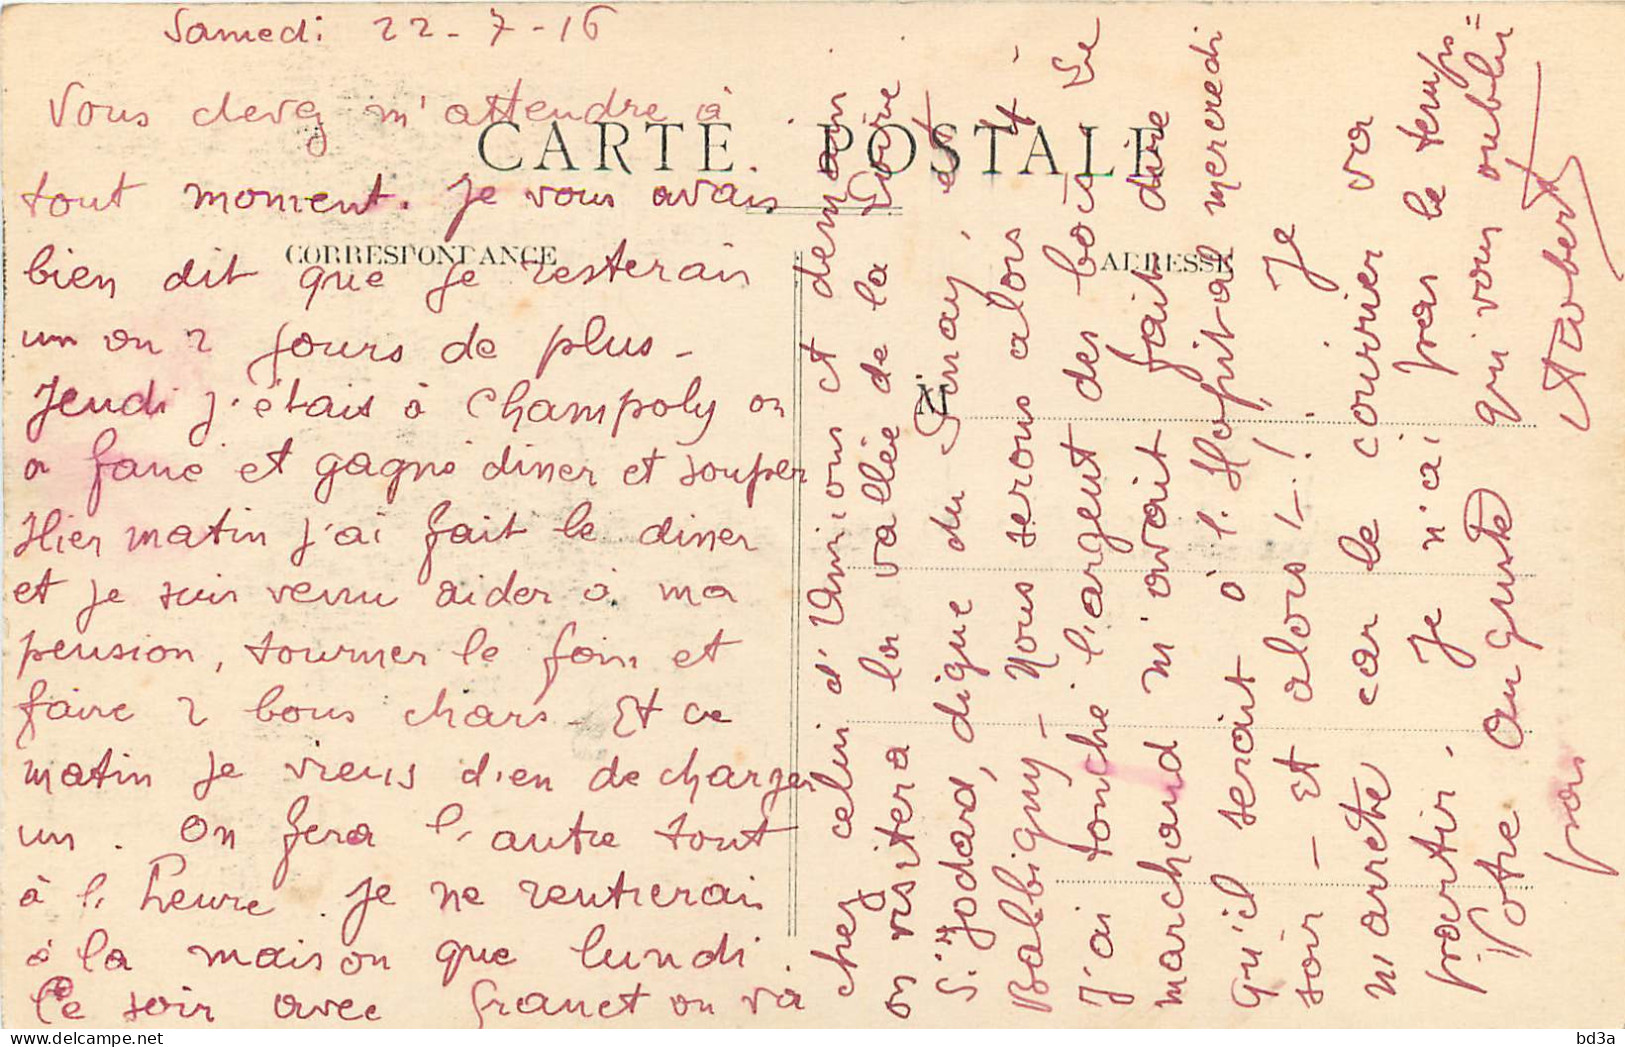 Samedi 22-7-16
Vous devez m'attendre à
tout moment. Je vous avais
bien dit que je resterais
un ou 2 jours de plus -
Jeudi j'étais à Champoly on
a fané et gagné diner et souper
Hier matin j'ai fait le diner
et je suis venu aider à ma
pension, tourner le foin et
faire 2 bons chars - Et ce
matin je viens d'en decharger
un. On fera l'autre tout
à l'heure. Je ne rentrerai
à la maison que lundi.
Ce soir avec Granet on va
CARTE POSTALE
CORRESPONDANCE
ADRESSE
M
chez celui d'Umions et demain
on visitera la vallée de la Loire
St Jodard, digue du Pinay, et
Balbigny - Nous serons alors 4 -
J'ai touché l'argent des bois Le
marchand m'avait fait dire
qu'il serait à l'Hopital mercredi
soir - Et alors !..! Je
m'arrête car le courrier va
partir. Je n'ai pas le temps =
Votre Auguste qui vous oublie
pas
Aubert
bd3a